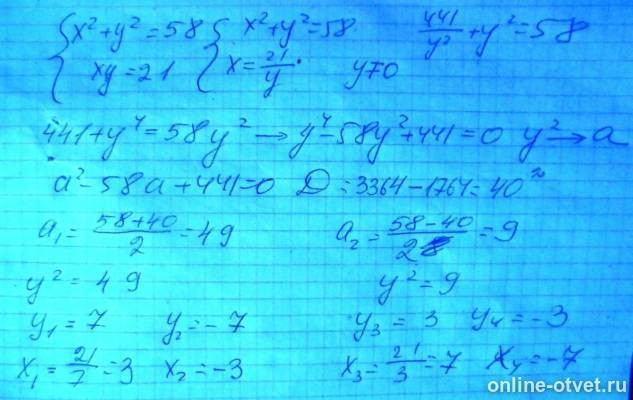 { x² + y² = 58 { x² + y² = 58 441/y² + y² = 58
xy = 21 x = 21/y. y ≠ 0
441 + y⁴ = 58y² → y⁴ - 58y² + 441 = 0 y² → a
a² - 58a + 441 = 0 D = 3364 - 1764 = 40²
a₁ = (58 + 40)/2 = 49 a₂ = (58 - 40)/2 = 9
y² = 49 y² = 9
y₁ = 7 y₂ = -7 y₃ = 3 y₄ = -3
x₁ = 21/7 = 3 x₂ = -3 x₃ = 21/3 = 7 x₄ = -7
online-otvet.ru